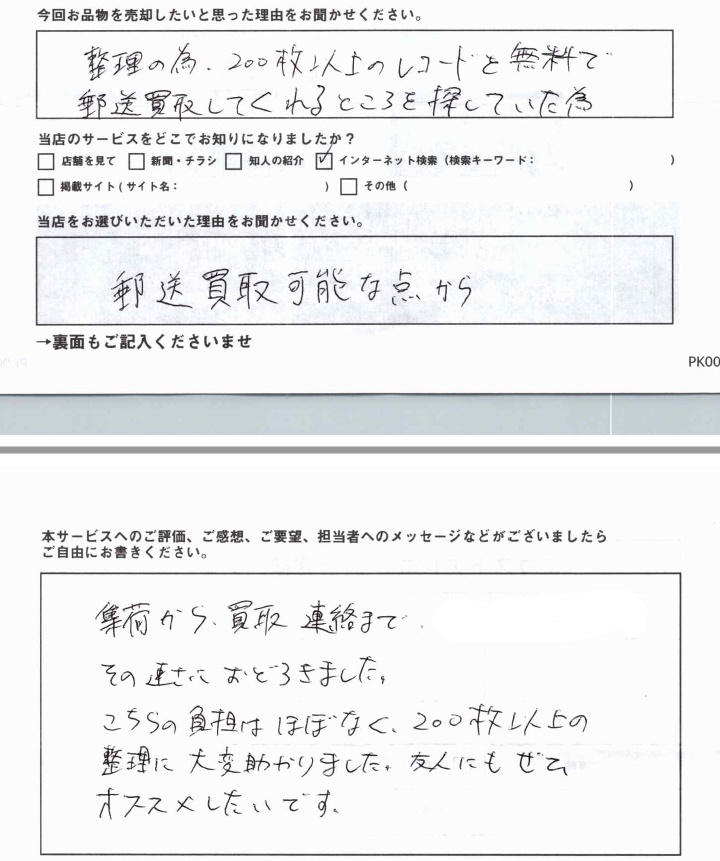 今回お品物を売却したいと思った理由をお聞かせください。
整理の為、200枚以上のレコードを無料で
郵送買取してくれるところを探していた為
当店のサービスをどこでお知りになりましたか？
□ 店舗を見て □ 新聞・チラシ □ 知人の紹介 ☑ インターネット検索（検索キーワード： ）
□ 掲載サイト（サイト名： ） □ その他（ ）
当店をお選びいただいた理由をお聞かせください。
郵送買取可能な点から
→裏面もご記入くださいませ
PK00
本サービスへのご評価、ご感想、ご要望、担当者へのメッセージなどがございましたら
ご自由にお書きください。
集荷から、買取連絡まで、
その速さにおどろきました。
こちらの負担はほぼなく、200枚以上の
整理に大変助かりました。友人にもぜひ
オススメしたいです。